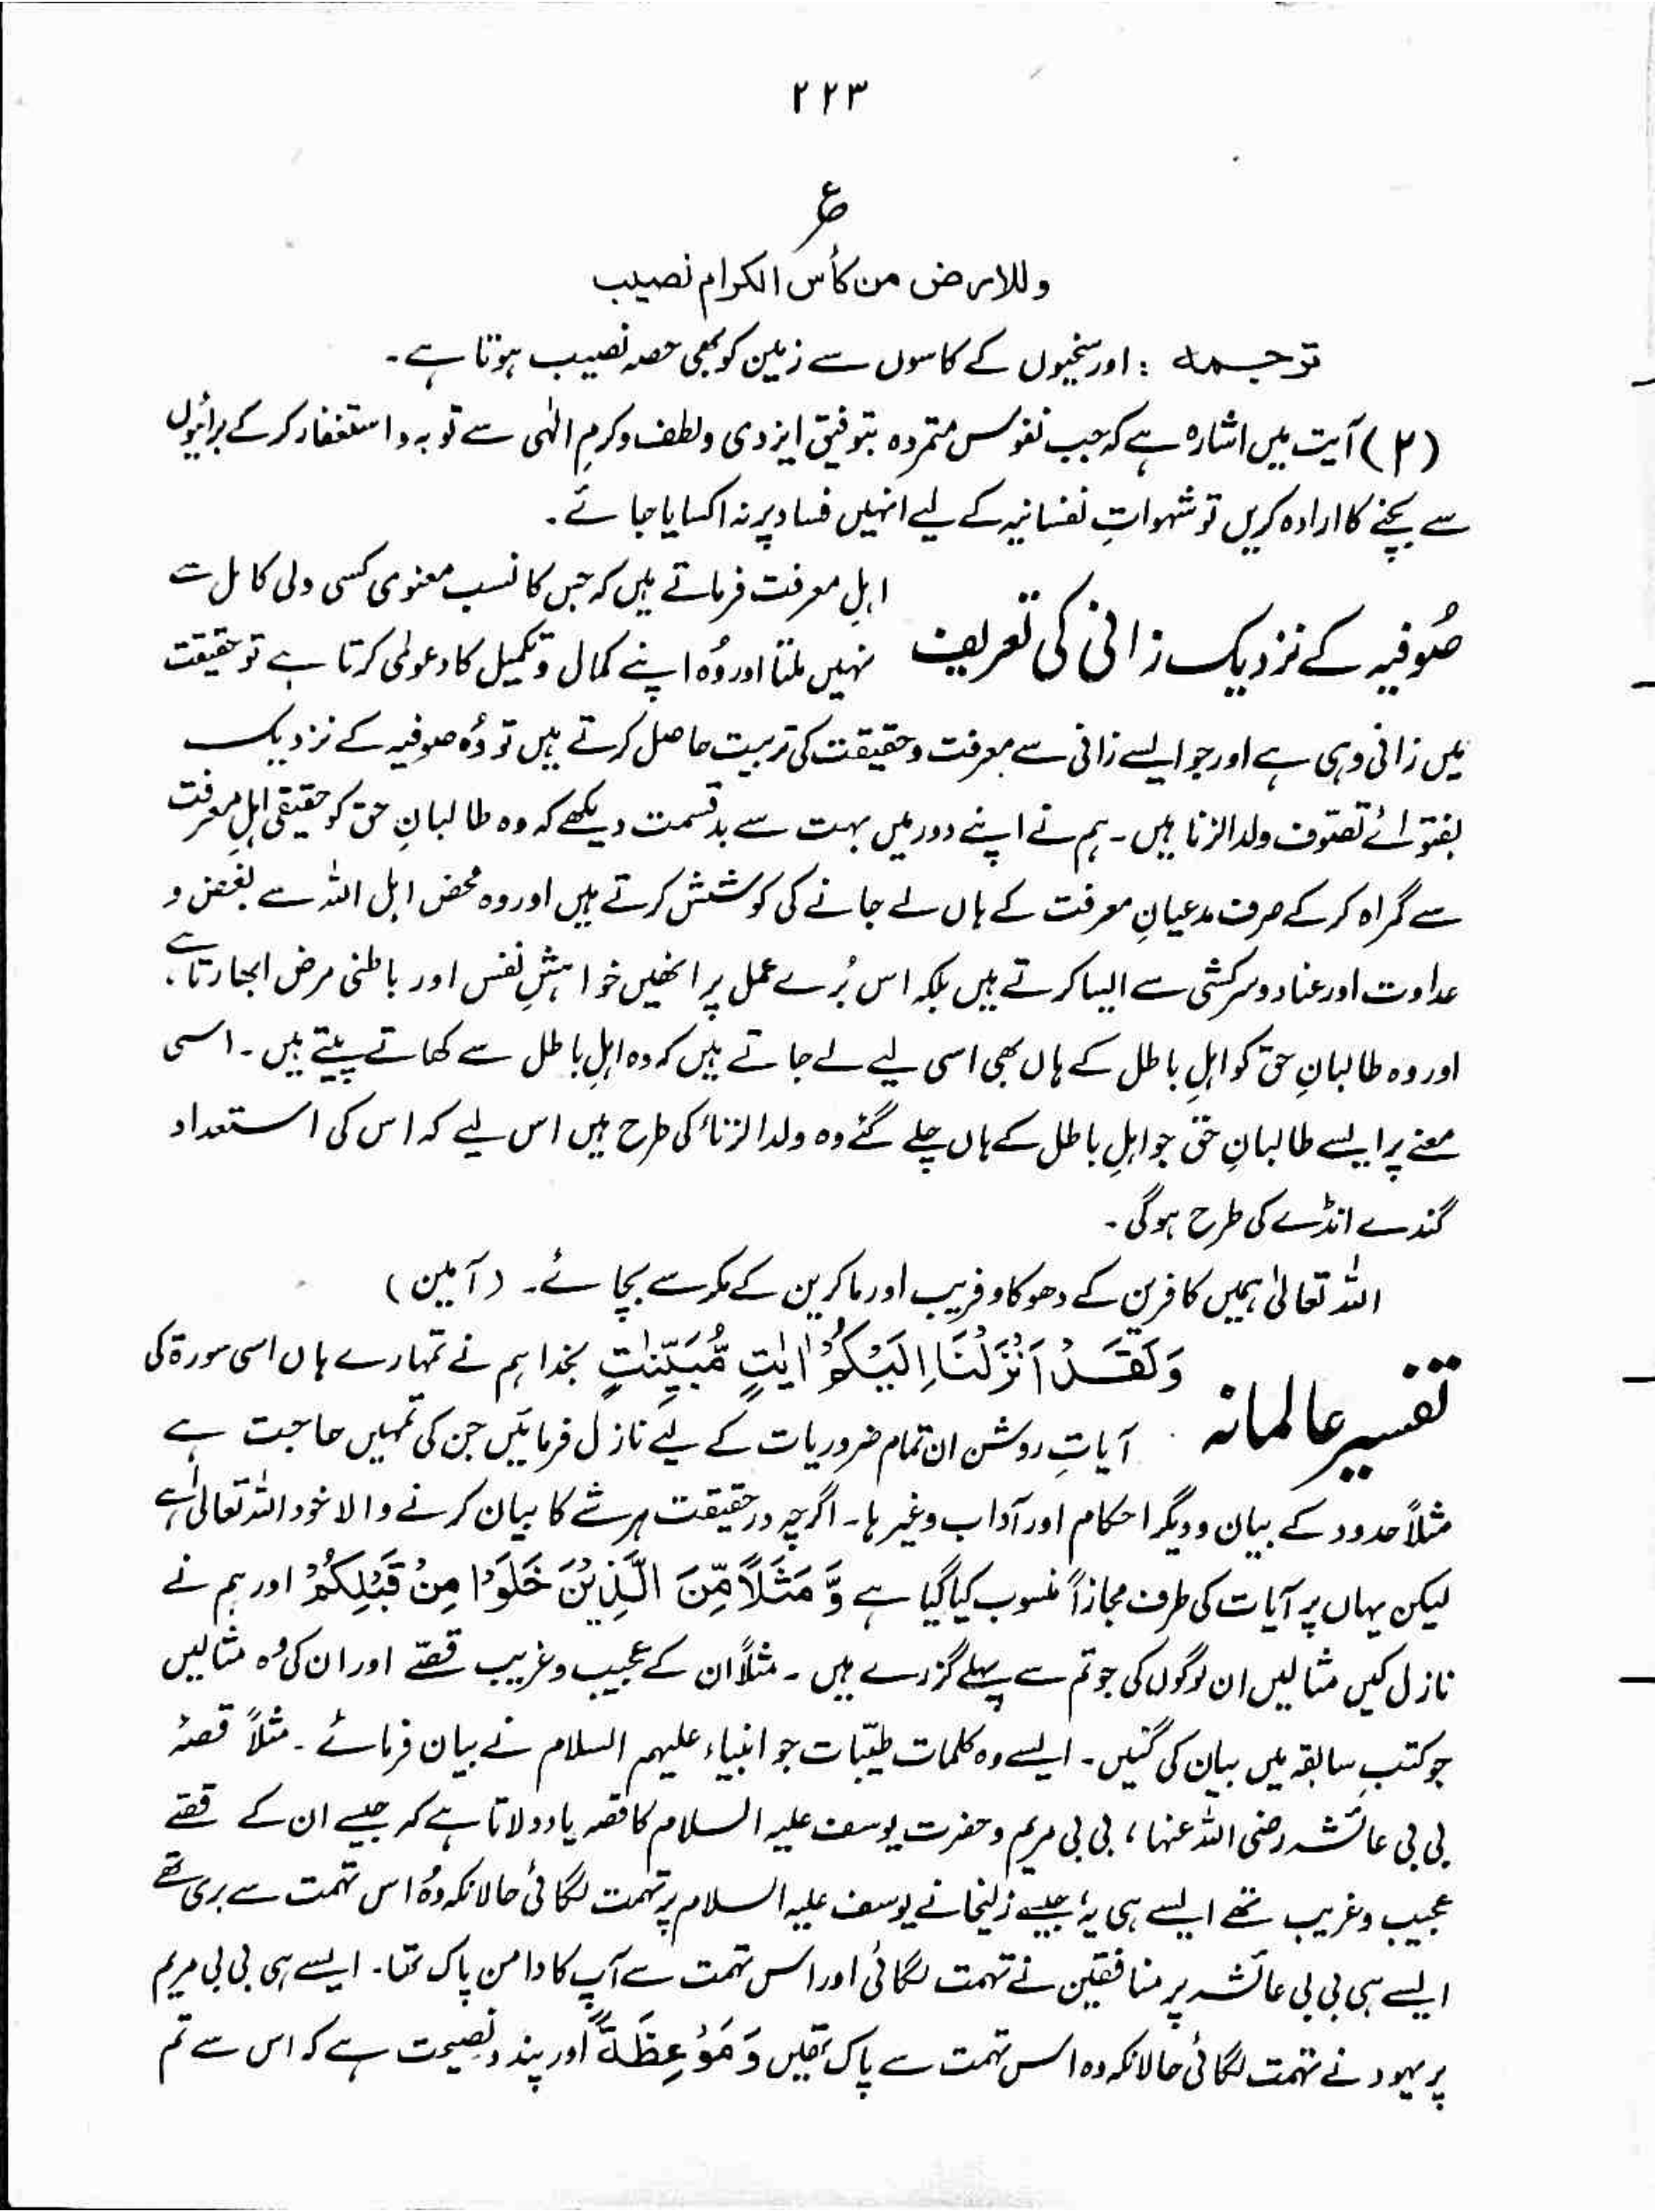 ۲۲۳
ع
وللارض من کأس الکرام نصیب
ترجمہ : اور سخیوں کے کاسوں سے زمین کو بھی حصہ نصیب ہوتا ہے۔
(۲) آیت میں اشارہ ہے کہ جب نفوس متمردہ بتوفیق ایزدی ولطف وکرمِ الٰہی سے توبہ و استغفار کرکے برائیوں
سے بچنے کا ارادہ کریں تو شہواتِ نفسانیہ کے لیے انہیں فساد پر نہ اکسایا جائے۔
صُوفیہ کے نزدیک زانی کی تعریف
اہلِ معرفت فرماتے ہیں کہ جس کا نسب معنوی کسی ولی کامل سے
نہیں ملتا اور وُہ اپنے کمال وتکمیل کا دعوٰی کرتا ہے تو حقیقت
میں زانی وہی ہے اور جو ایسے زانی سے معرفت وحقیقت کی تربیت حاصل کرتے ہیں تو وُہ صوفیہ کے نزدیک
بفتوائے تصوّف ولد الزنا ہیں۔ ہم نے اپنے دور میں بہت سے بدقسمت دیکھے کہ وہ طالبانِ حق کو حقیقی اہلِ معرفت
سے گمراہ کرکے صرف مدعیانِ معرفت کے ہاں لے جانے کی کوشش کرتے ہیں اور وہ محض اہل اللہ سے بغض و
عداوت اور عناد وسرکشی سے ایسا کرتے ہیں بلکہ اس بُرے عمل پر انھیں خواہشِ نفس اور باطنی مرض ابھارتا ہے،
اور وہ طالبانِ حق کو اہلِ باطل کے ہاں بھی اسی لیے لے جاتے ہیں کہ وہ اہلِ باطل سے کھاتے پیتے ہیں۔ اسی
معنے پر ایسے طالبانِ حق جو اہلِ باطل کے ہاں چلے گئے وہ ولد الزناء کی طرح ہیں اس لیے کہ اس کی استعداد
گندے انڈے کی طرح ہوگی۔
اللہ تعالیٰ ہمیں کافرین کے دھوکا وفریب اور ماکرین کے مکر سے بچائے۔ (آمین)
تفسیر عالمانہ
وَلَقَدْ اَنْزَلْنَا اِلَیْکُمْ اٰیٰتٍ مُّبَیِّنٰتٍ بخدا ہم نے تمہارے ہاں اسی سورۃ کی
آیاتِ روشن ان تمام ضروریات کے لیے نازل فرمائیں جن کی تمہیں حاجت ہے
مثلاً حدود کے بیان ودیگر احکام اور آداب وغیرہا۔ اگرچہ درحقیقت ہر شے کا بیان کرنے والا خود اللہ تعالیٰ ہے
لیکن یہاں پر آیات کی طرف مجازاً منسوب کیا گیا ہے وَّ مَثَلًا مِّنَ الَّذِیْنَ خَلَوْا مِنْ قَبْلِکُمْ اور ہم نے
نازل کیں مثالیں ان لوگوں کی جو تم سے پہلے گزرے ہیں۔ مثلاً ان کے عجیب وغریب قصّے اور ان کی وُہ مثالیں
جو کتبِ سابقہ میں بیان کی گئیں۔ ایسے وہ کلمات طیّبات جو انبیاء علیہم السلام نے بیان فرمائے۔ مثلاً قصۂ
بی بی عائشہ رضی اللہ عنہا ، بی بی مریم وحضرت یوسف علیہ السلام کا قصہ یاد دلاتا ہے کہ جیسے ان کے قصّے
عجیب وغریب تھے ایسے ہی یہ، جیسے زلیخا نے یوسف علیہ السلام پر تہمت لگائی حالانکہ وُہ اس تہمت سے بری تھے
ایسے ہی بی بی عائشہ پر منافقین نے تہمت لگائی اور اس تہمت سے آپ کا دامن پاک تھا۔ ایسے ہی بی بی مریم
پر یہود نے تہمت لگائی حالانکہ وہ اس تہمت سے پاک تھیں وَ مَوْعِظَةً اور پند ونصیحت ہے کہ اس سے تم